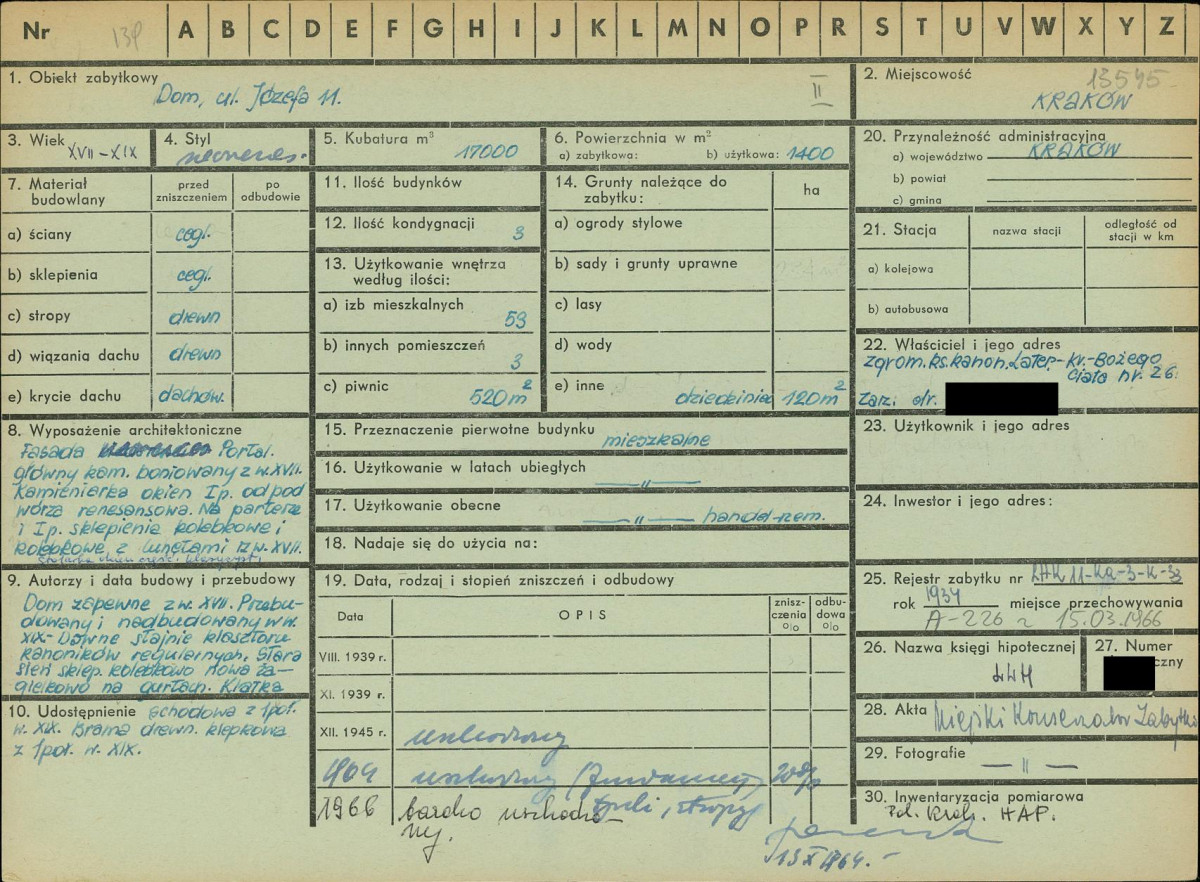 Nr 139 A B C D E F G H I J K L M N O P R S T U V W X Y Z
1. Obiekt zabytkowy
Dom, ul. Józefa 11.
II
2. Miejscowość
13545
KRAKÓW
3. Wiek
XVII-XIX
4. Styl
neorenes.
5. Kubatura m³
17000
6. Powierzchnia w m²
a) zabytkowa: b) użytkowa: 1400
20. Przynależność administracyjna
a) województwo KRAKÓW
b) powiat
c) gmina
7. Materiał budowlany
przed zniszczeniem
po odbudowie
a) ściany cegl.
b) sklepienia cegl.
c) stropy drewn
d) wiązania dachu drewn
e) krycie dachu dachów.
11. Ilość budynków
12. Ilość kondygnacji 3
13. Użytkowanie wnętrza
według ilości:
a) izb mieszkalnych 59
b) innych pomieszczeń 3
c) piwnic 520 m²
14. Grunty należące do
zabytku:
ha
a) ogrody stylowe
b) sady i grunty uprawne
c) lasy
d) wody
e) inne dziedziniec 120m²
21. Stacja
nazwa stacji
odległość od
stacji w km
a) kolejowa
b) autobusowa
22. Właściciel i jego adres
Zgrom. ks. kanon. Later.- kr.-Bożego
Ciała nr. 26.
Zarz. dr.
8. Wyposażenie architektoniczne
Fasada Portal.
główny kam. boniowany z w. XVII.
Kamieniarka okien I p. od pod
wórza renesansowa. Na parterze
i I p. sklepienie kolebkowe i
kolebkowe z lunetami z w. XVII.
Stolarka okien część. klasycyst.
15. Przeznaczenie pierwotne budynku
mieszkalne
16. Użytkowanie w latach ubiegłych
— " —
17. Użytkowanie obecne
— " — handl-rzem.
18. Nadaje się do użycia na:
23. Użytkownik i jego adres
24. Inwestor i jego adres:
9. Autorzy i data budowy i przebudowy
Dom zapewne z w. XVII. Przebu-
dowany i nadbudowany w w.
XIX- Dawne stajnie klasztoru
kanoników regularnych. Stara
sień sklep. kolebkowo nowa ża-
gielkowo na gurtach. Klatka
10. Udostępnienie
schodowa z 1 poł.
w. XIX. Brama drewn. klepkowa
z 1 poł. w. XIX.
19. Data, rodzaj i stopień zniszczeń i odbudowy
Data
OPIS
znisz-
czenia
%
odbu-
dowa
%
VIII. 1939 r.
XI. 1939 r.
XII. 1945 r. uszkodzony
1964 uszkodzony (fundamenty 20%
tynki, stropy)
1966 bardzo uszkodzo-
ny.
13 X 1964.-
25. Rejestr zabytku nr LHK 11-Ka-3-K-33
rok 1934 miejsce przechowywania
A-226 z 15.03.1966
26. Nazwa księgi hipotecznej
LLH
27. Numer
czny
28. Akta Miejski Konserwator Zabytków
29. Fotografie
— " —
30. Inwentaryzacja pomiarowa
Pol. Krak. HAP.